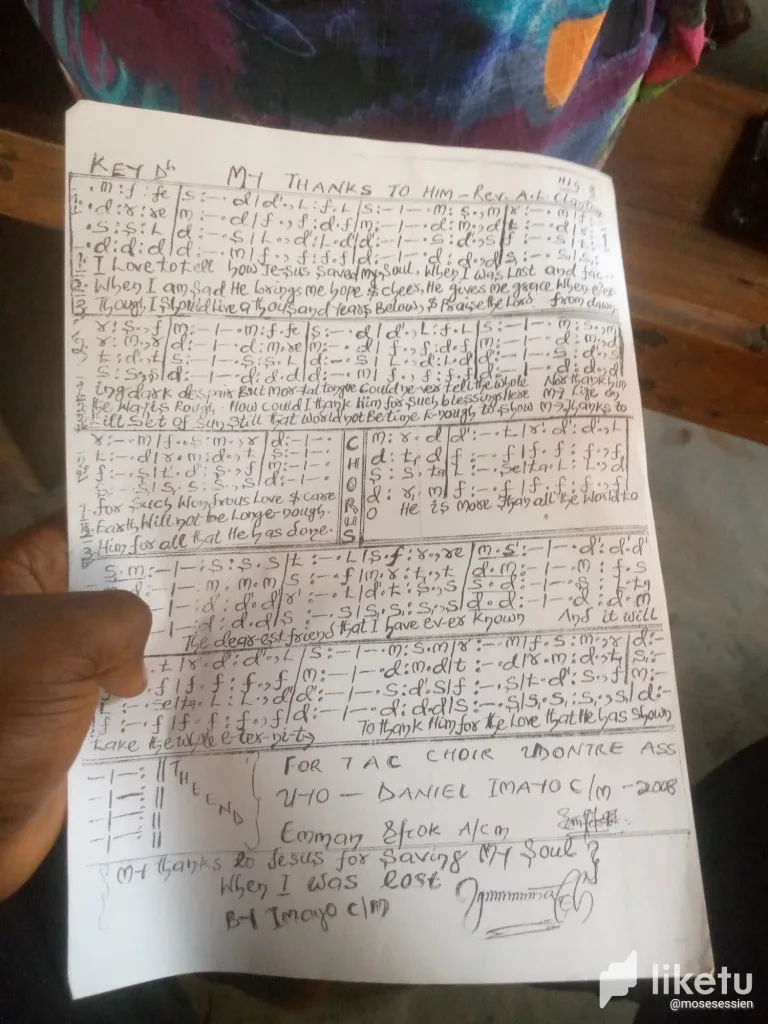 KEY Db MY THANKS TO HIM - Rev. A.L. Clanton
.m:f:fe|s:-.d|d'.,L:f.L|s:-|-.m:s.,m|r:-.m|f:
.d:r:re|m:-.d|f.,f:d.f|m:-|-.d:m.,d|t:-.d|r:
.s:s:L|d:-.s|L.,d:L.d|d:-|-.s:d.,s|f:-.s|L:
.d:d:d|d:-.m|f.,f:f.f|d:-|-.d:d.,d|s:-.s|s:
I Love to tell how Je-sus Saved my Soul, When I was Lost and fac-
2. When I am Sad He brings me hope & cheer, He gives me grace When ever
Though I Should Live a thousand Years Below, & Praise the Lord from dawn
r:s.,f|m:-|-.m:f.fe|s:-.d|d'.,L:f.L|s:-|-.m:s.,m
r:m.,r|d:-|-.d:m.re|m:-.d|f.,f:d.f|m:-|-.d:m.,d
t:d.,t|s:-|-.s:s.L|d:-.s|L.,d:L.d|d:-|-.s:d.,s
s:s.,s|d:-|-.d:d.d|d:-.m|f.,f:f.f|d:-|-.d:d.,d
ing dark despair But mor-tal tongue Could ne-ver tell the whole Nor thank him
the way is Rough. How Could I thank Him for Such blessings Here My Life on
till Set of Sun Still that would not be time E-nough to Show My thanks to
r:-.m|f.s:m.,r|d:-|-. CHORUS m:r.d|d':-.t|r'.d':d'.,L
t:-.d|r.m:d.,t|s:-|-. d:t.d|f:-.f|f.f:f.,f
f:-.s|t.d':s.,f|m:-|-. s:s.ta|L:-.se|ta.L:L.,d'
s:-.s|s.s:s.,s|d:-|-. d:r.m|f:-.f|f.f:f.,f
for Such Wondrous Love & care O He is more than all the World to
Earth Will not be Longe-nough.
Him for all that He has done.
s.m:-|-.s:s.s|t:-.L|s.f:r.,re|m.s':-|-.d':d'.d'
d:-|-.m:m.m|s:-.f|m.r:t.,t|d.m:-|-.m:f.s
d':-|-.d':d'.d'|r':-.t|d'.t:s.,s|s.d:-|-.s:L.ta
d:-|-.d:d.d|s:-.s|s.s:s.,s|d.d:-|-.d:d.m
The dear-est friend that I have ev-er known And it will
.t|r'.d':d'.,L|s:-|-.m:s.m|r:-.m|f.s:m.,r|d:-
.f|f.f:f.,f|m:-|-.d:m.d|t:-.d|r.m:d.,t|s:-
f:-.se|ta.L:L.,d'|d':-|-.s:d'.s|f:-.s|t.d':s.,f|m:-
f:-.f|f.f:f.,f|d:-|-.d:d.d|s:-.s|s.s:s.,s|d:-
take the whole e-ter-ni-ty To thank Him for the Love that He has shown
THE END
FOR TAC CHOIR UDONTRE ASS
UYO - DANIEL IMAYO C/M - 2008
Emman Efiok A/CM
My thanks to Jesus for Saving My Soul
When I was Lost
BY Imayo C/M
liketu
@mosesessien